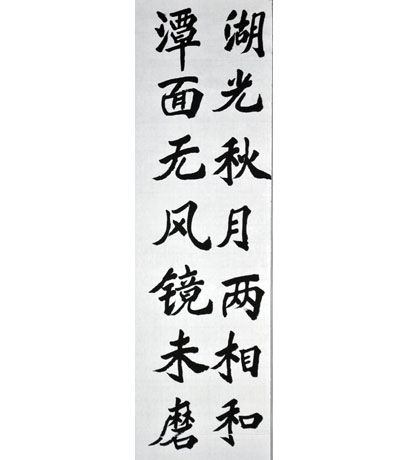 湖光秋月两相和
潭面无风镜未磨